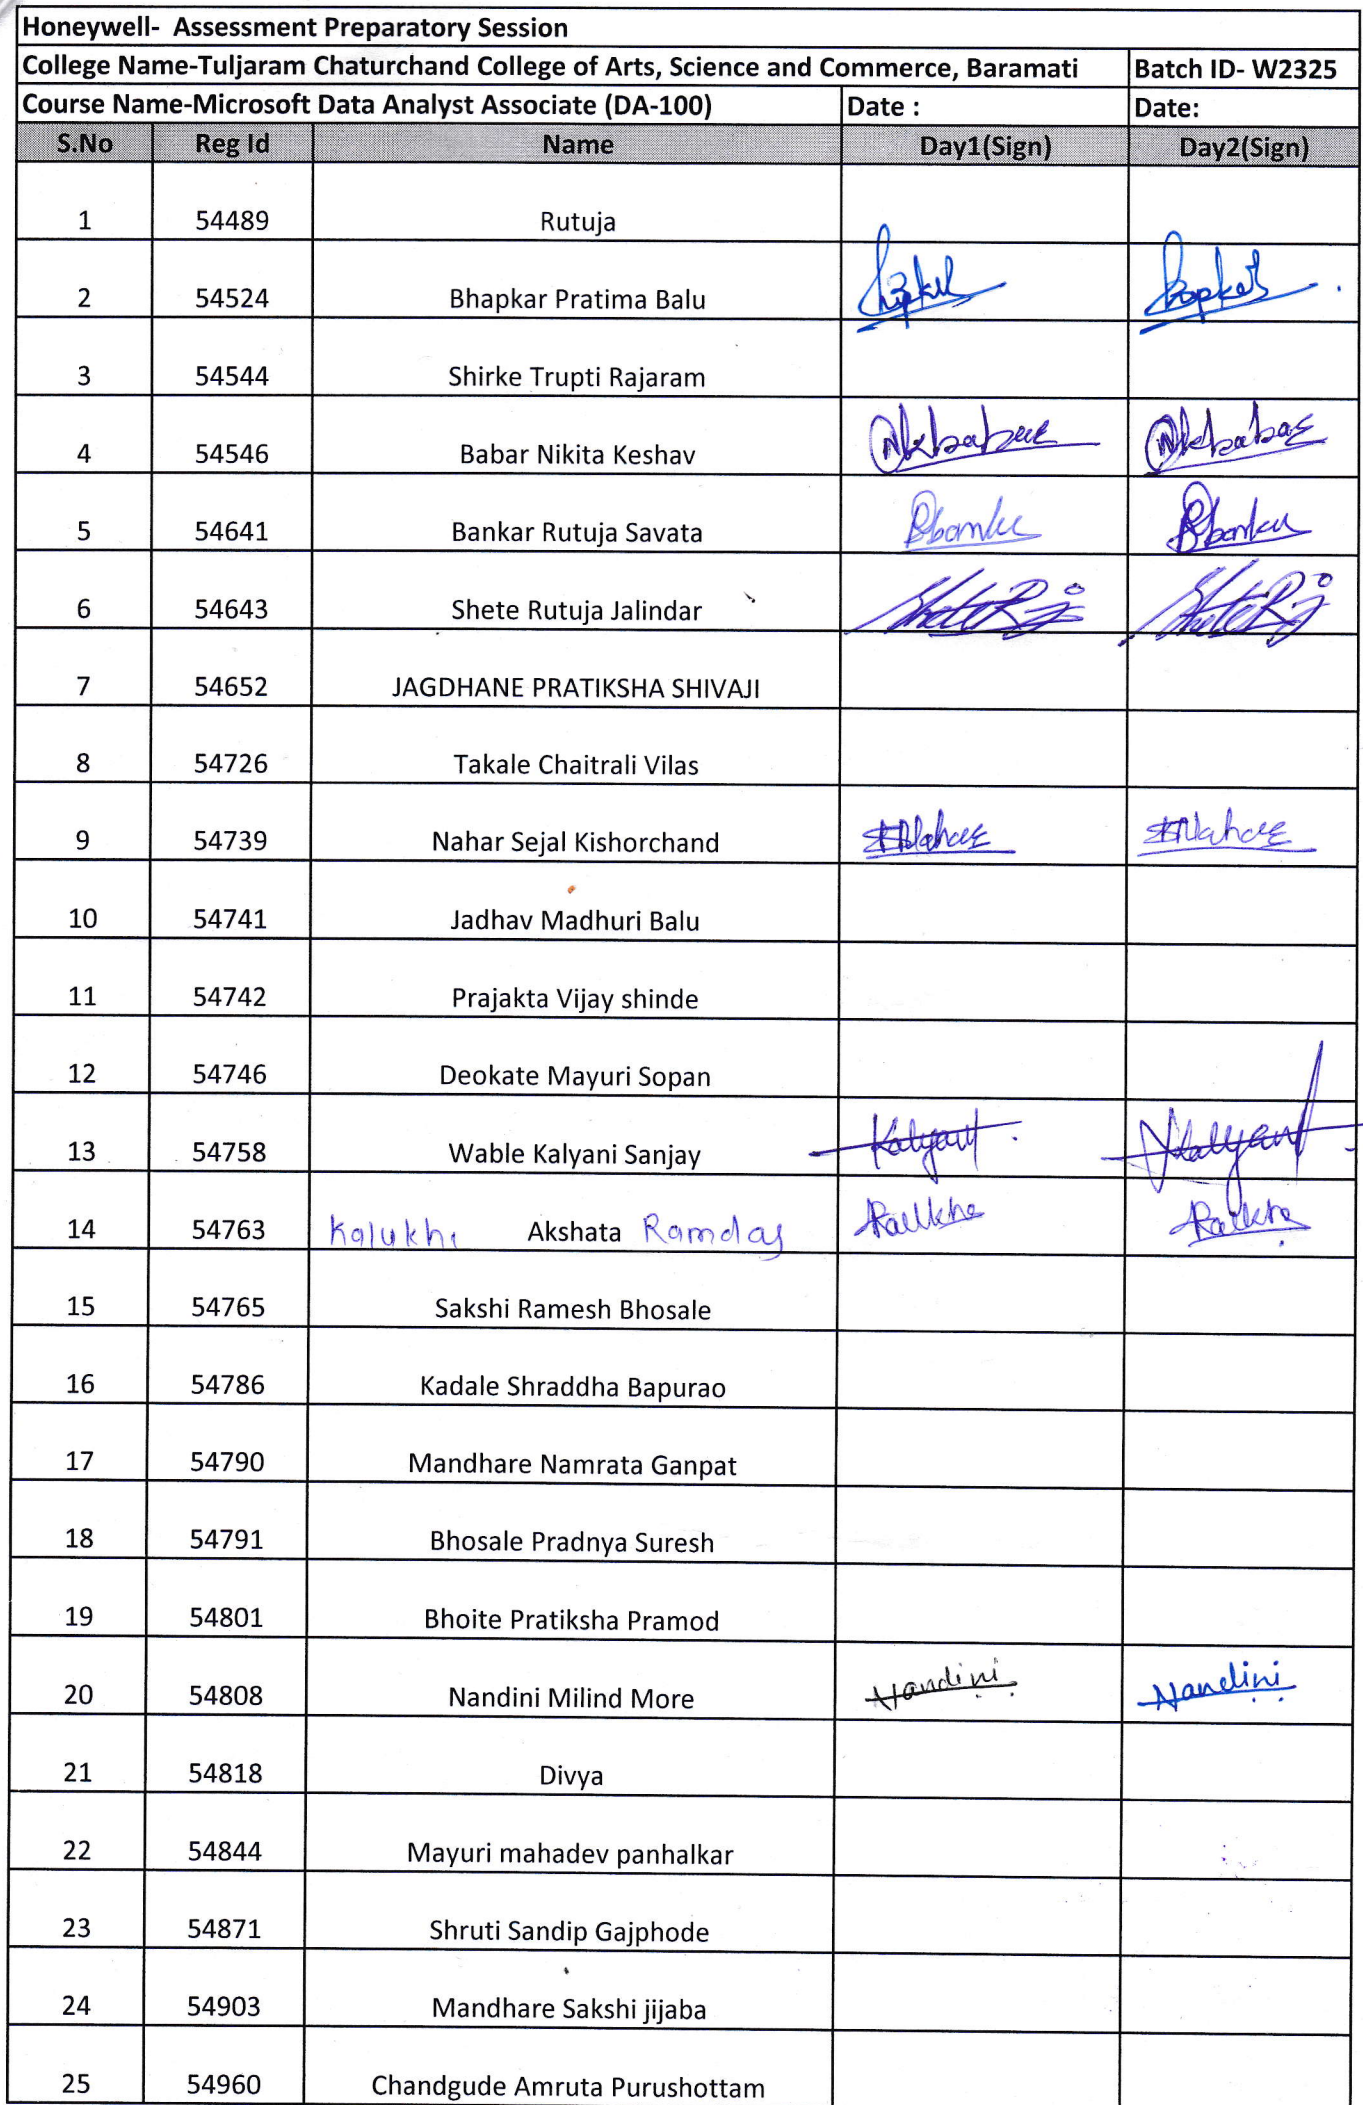 Honeywell- Assessment Preparatory Session
College Name-Tuljaram Chaturchand College of Arts, Science and Commerce, Baramati Batch ID- W2325
Course Name-Microsoft Data Analyst Associate (DA-100) Date : Date:
S.No Reg Id Name Day1(Sign) Day2(Sign)
1 54489 Rutuja
2 54524 Bhapkar Pratima Balu
3 54544 Shirke Trupti Rajaram
4 54546 Babar Nikita Keshav
5 54641 Bankar Rutuja Savata
6 54643 Shete Rutuja Jalindar
7 54652 JAGDHANE PRATIKSHA SHIVAJI
8 54726 Takale Chaitrali Vilas
9 54739 Nahar Sejal Kishorchand
10 54741 Jadhav Madhuri Balu
11 54742 Prajakta Vijay shinde
12 54746 Deokate Mayuri Sopan
13 54758 Wable Kalyani Sanjay Kalyani Kalyani
14 54763 Kalukhe Akshata Ramdas
15 54765 Sakshi Ramesh Bhosale
16 54786 Kadale Shraddha Bapurao
17 54790 Mandhare Namrata Ganpat
18 54791 Bhosale Pradnya Suresh
19 54801 Bhoite Pratiksha Pramod
20 54808 Nandini Milind More Nandini Nandini
21 54818 Divya
22 54844 Mayuri mahadev panhalkar
23 54871 Shruti Sandip Gajphode
24 54903 Mandhare Sakshi jijaba
25 54960 Chandgude Amruta Purushottam